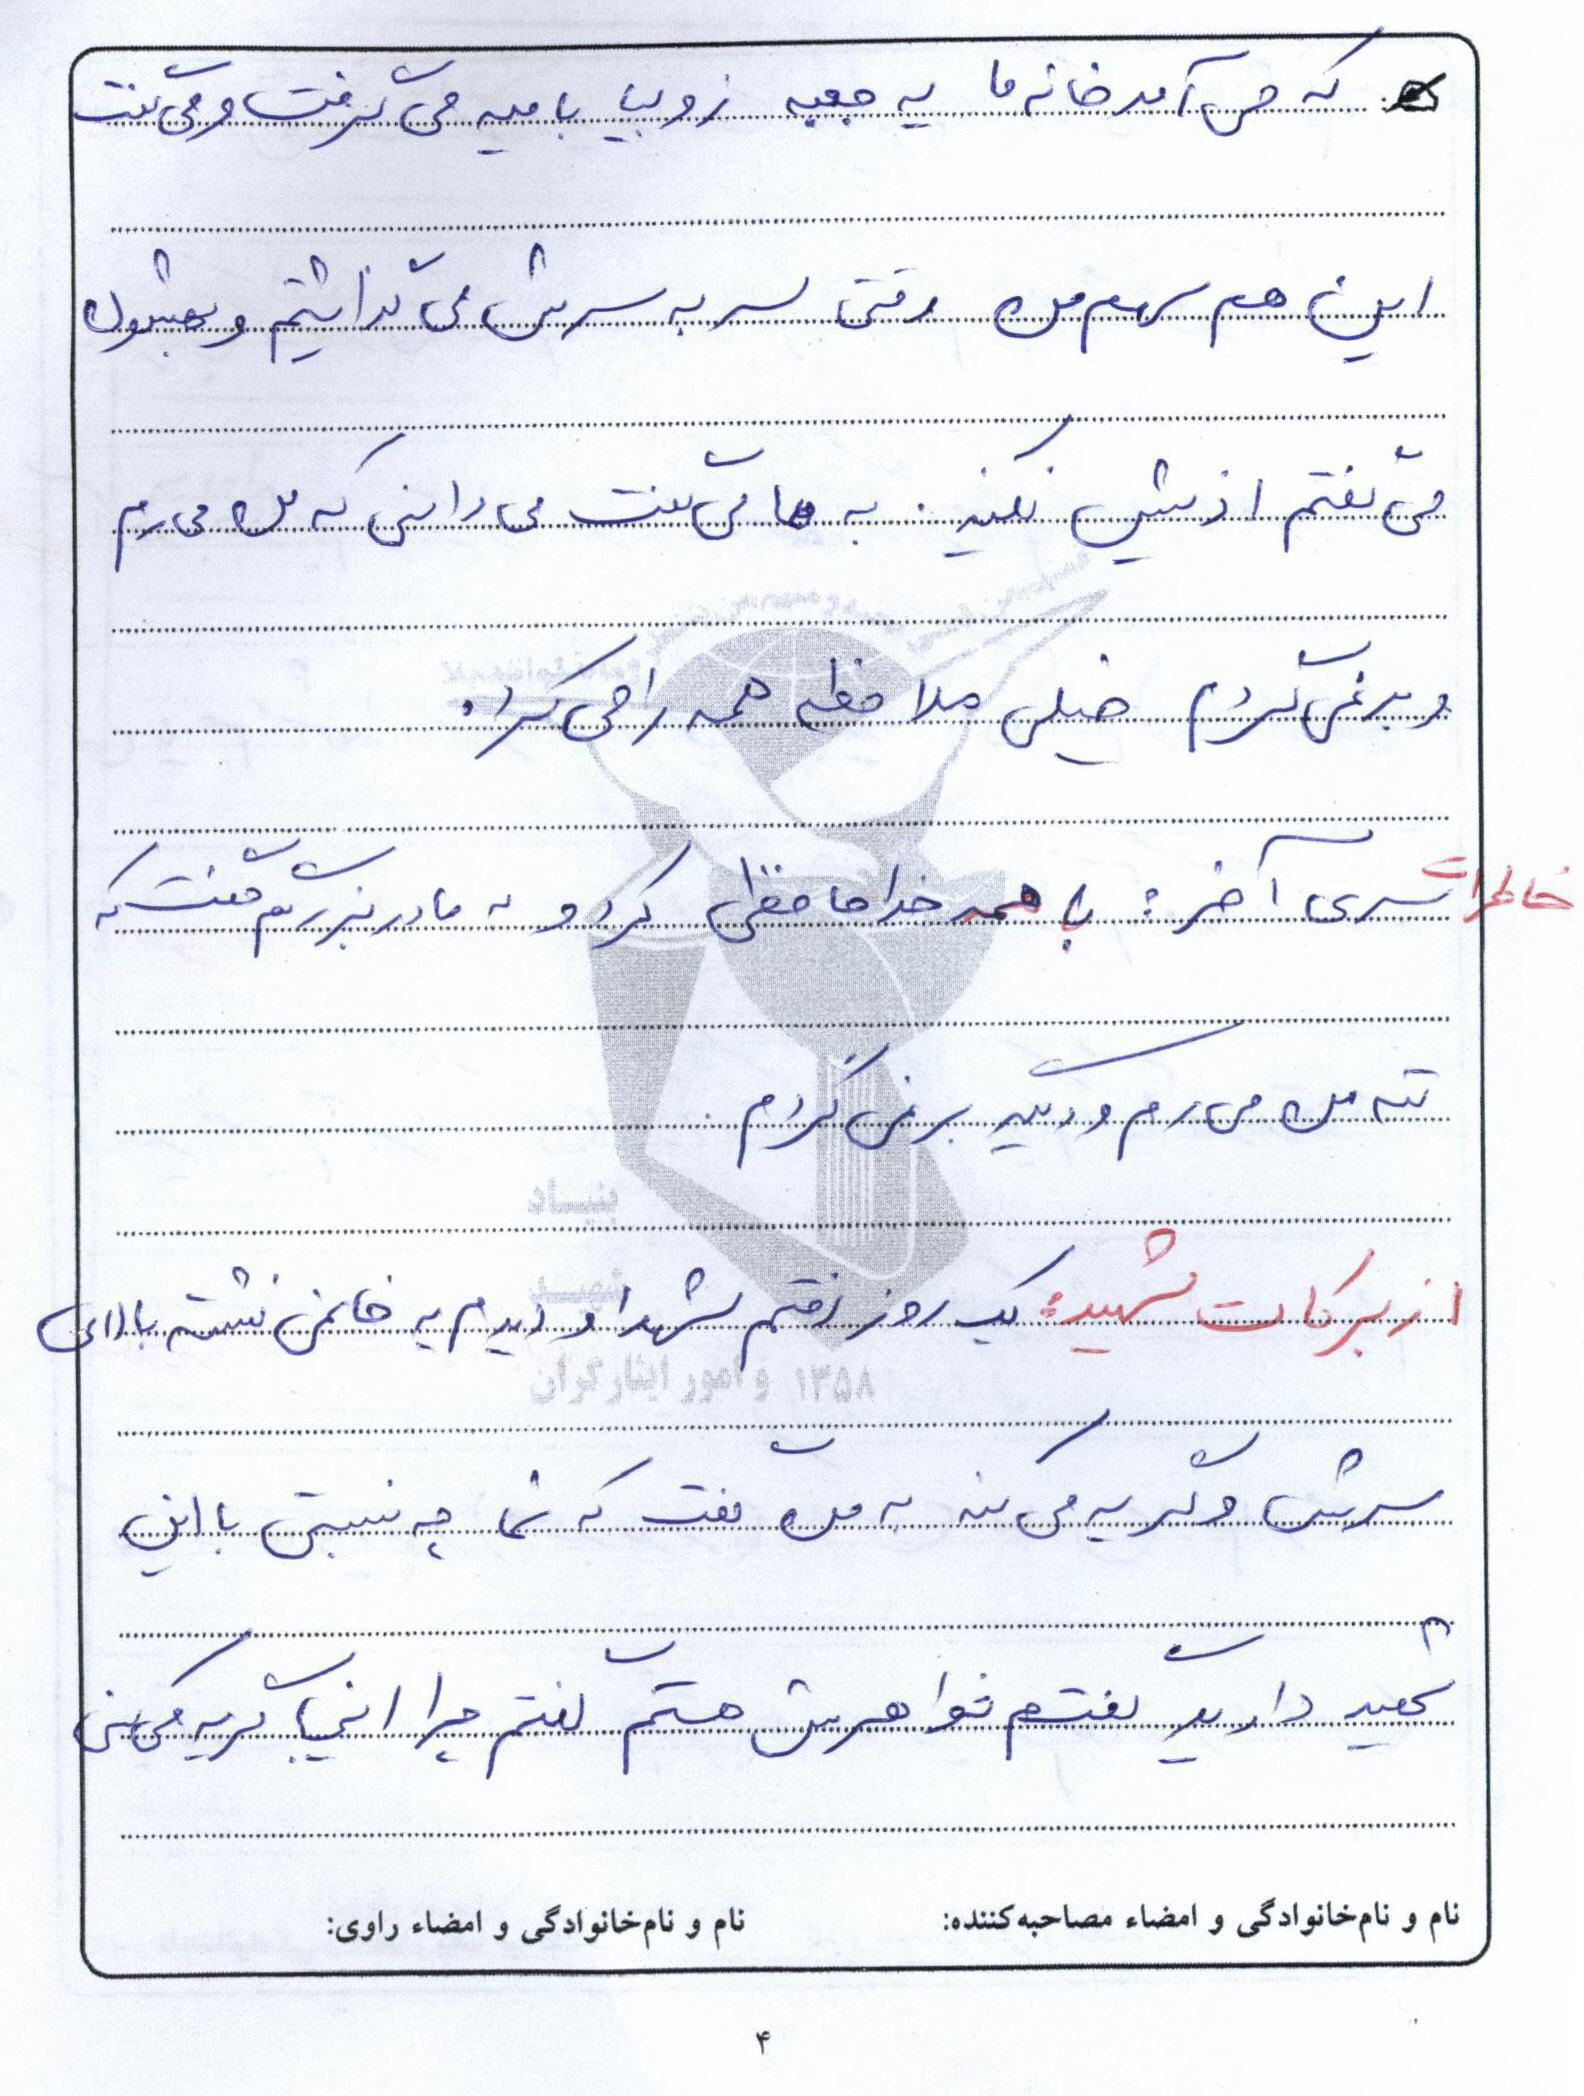 که می آمد خانه ما یه جعبه زولبیا بامیه می گرفت و می گفت
این هم سهم من وقتی سر به سرش می گذاشتیم و بهشون
می گفتم اذیتش نکنید. به ما می گفت می دانی که من می رم
و برنمی گردم خیلی ملاحظه همه را می کرد.
خاطرات سری آخر: با همه خداحافظی کرد و به مادربزرگم گفت که
ننه من می رم و دیگه برنمی گردم.
از برکات شهید: یک روز رفتم شهدا و دیدم یه خانمی نشسته بالای
سرش و گریه می کنه به من گفت که شما چه نسبتی با این
شهید دارید گفتم خواهرش هستم گفتم چرا اینجا گریه می کنی
بنیاد
شهید
و امور ایثارگران ۱۳۵۸
نام و نام‌خانوادگی و امضاء مصاحبه‌کننده: نام و نام‌خانوادگی و امضاء راوی:
۴